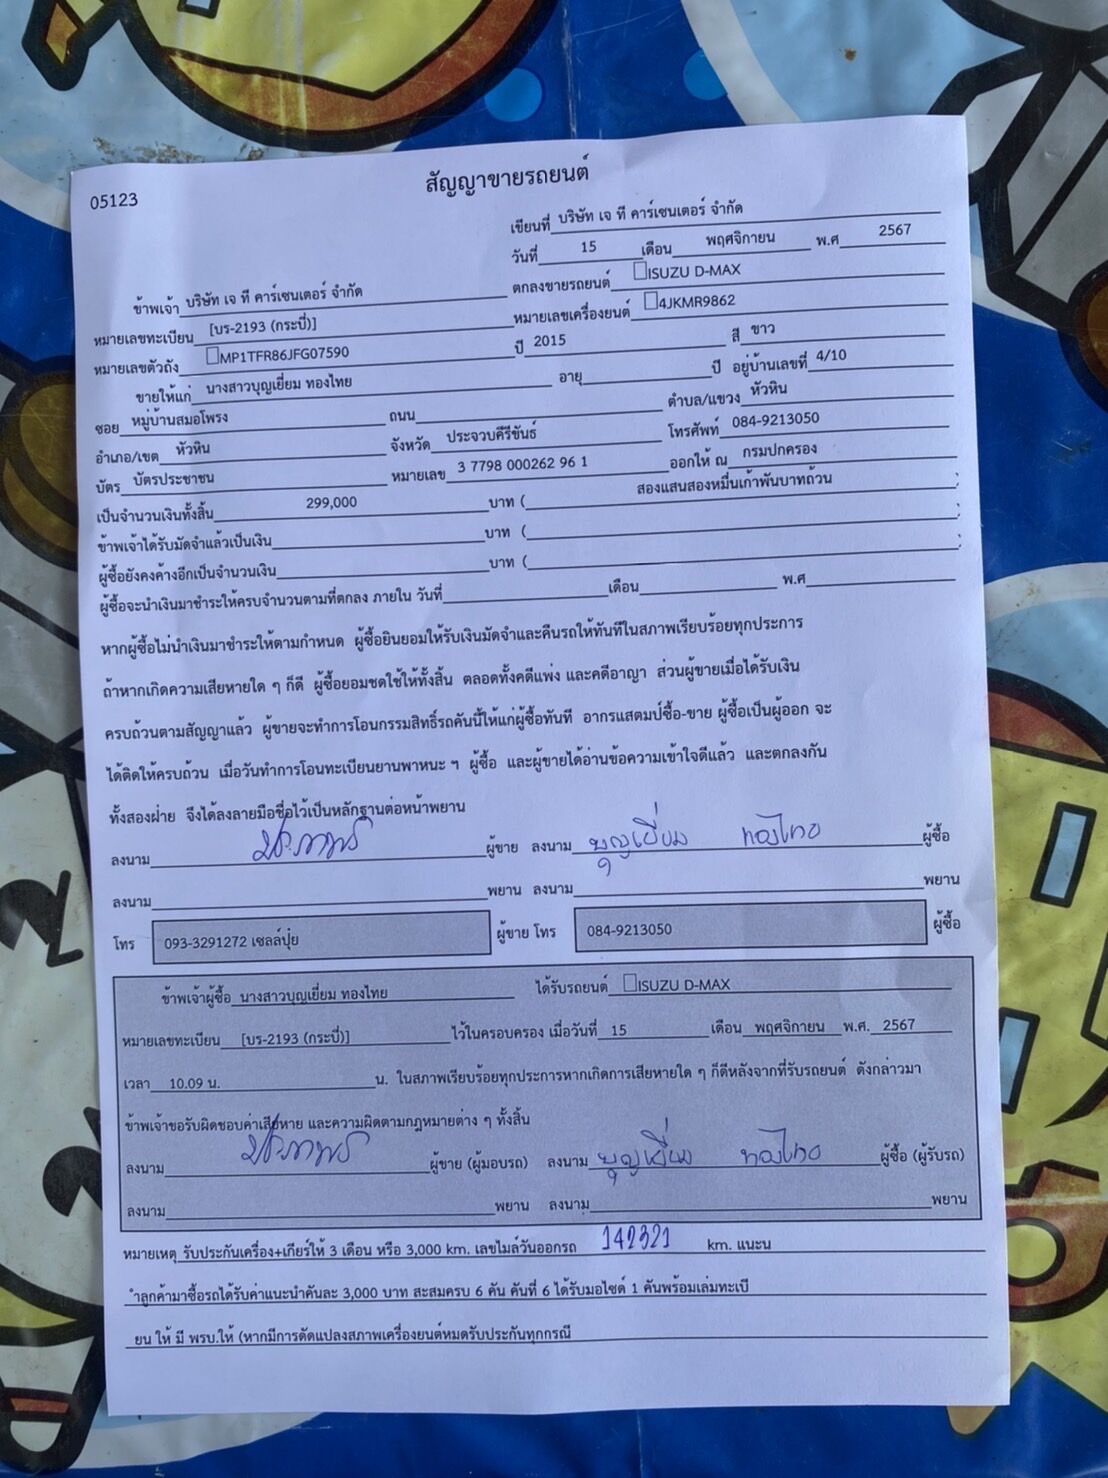 05123
สัญญาขายรถยนต์
เขียนที่ บริษัท เจ ที คาร์เซนเตอร์ จำกัด
วันที่ 15 เดือน พฤศจิกายน พ.ศ 2567
ข้าพเจ้า บริษัท เจ ที คาร์เซนเตอร์ จำกัด ตกลงขายรถยนต์ ISUZU D-MAX
หมายเลขทะเบียน [บร-2193 (กระบี่)] หมายเลขเครื่องยนต์ 4JKMR9862
หมายเลขตัวถัง MP1TFR86JFG07590 ปี 2015 สี ขาว
ขายให้แก่ นางสาวบุญเยี่ยม ทองไทย อายุ ปี อยู่บ้านเลขที่ 4/10
ซอย หมู่บ้านสมอโพรง ถนน ตำบล/แขวง หัวหิน
อำเภอ/เขต หัวหิน จังหวัด ประจวบคีรีขันธ์ โทรศัพท์ 084-9213050
บัตร บัตรประชาชน หมายเลข 3 7798 000262 96 1 ออกให้ ณ กรมปกครอง
เป็นจำนวนเงินทั้งสิ้น 299,000 บาท ( สองแสนสองหมื่นเก้าพันบาทถ้วน )
ข้าพเจ้าได้รับมัดจำแล้วเป็นเงิน บาท ( )
ผู้ซื้อยังคงค้างอีกเป็นจำนวนเงิน บาท ( )
ผู้ซื้อจะนำเงินมาชำระให้ครบจำนวนตามที่ตกลง ภายใน วันที่ เดือน พ.ศ
หากผู้ซื้อไม่นำเงินมาชำระให้ตามกำหนด ผู้ซื้อยินยอมให้รับเงินมัดจำและคืนรถให้ทันทีในสภาพเรียบร้อยทุกประการ
ถ้าหากเกิดความเสียหายใด ๆ ก็ดี ผู้ซื้อยอมชดใช้ให้ทั้งสิ้น ตลอดทั้งคดีแพ่ง และคดีอาญา ส่วนผู้ขายเมื่อได้รับเงิน
ครบถ้วนตามสัญญาแล้ว ผู้ขายจะทำการโอนกรรมสิทธิ์รถคันนี้ให้แก่ผู้ซื้อทันที อากรแสตมป์ซื้อ-ขาย ผู้ซื้อเป็นผู้ออก จะ
ได้ติดให้ครบถ้วน เมื่อวันทำการโอนทะเบียนยานพาหนะ ฯ ผู้ซื้อ และผู้ขายได้อ่านข้อความเข้าใจดีแล้ว และตกลงกัน
ทั้งสองฝ่าย จึงได้ลงลายมือชื่อไว้เป็นหลักฐานต่อหน้าพยาน
ลงนาม ผู้ขาย ลงนาม บุญเยี่ยม ทองไทย ผู้ซื้อ
ลงนาม พยาน ลงนาม พยาน
โทร 093-3291272 เซลล์ปุ๋ย ผู้ขาย โทร 084-9213050 ผู้ซื้อ
ข้าพเจ้าผู้ซื้อ นางสาวบุญเยี่ยม ทองไทย ได้รับรถยนต์ ISUZU D-MAX
หมายเลขทะเบียน [บร-2193 (กระบี่)] ไว้ในครอบครอง เมื่อวันที่ 15 เดือน พฤศจิกายน พ.ศ. 2567
เวลา 10.09 น. น. ในสภาพเรียบร้อยทุกประการหากเกิดการเสียหายใด ๆ ก็ดีหลังจากที่รับรถยนต์ ดังกล่าวมา
ข้าพเจ้าขอรับผิดชอบค่าเสียหาย และความผิดตามกฎหมายต่าง ๆ ทั้งสิ้น
ลงนาม ผู้ขาย (ผู้มอบรถ) ลงนาม บุญเยี่ยม ทองไทย ผู้ซื้อ (ผู้รับรถ)
ลงนาม พยาน ลงนาม พยาน
หมายเหตุ รับประกันเครื่อง+เกียร์ให้ 3 เดือน หรือ 3,000 km. เลขไมล์วันออกรถ 142321 km. แนะน
ำลูกค้ามาซื้อรถได้รับค่าแนะนำคันละ 3,000 บาท สะสมครบ 6 คัน คันที่ 6 ได้รับมอไซด์ 1 คันพร้อมเล่มทะเบี
ยน ให้ มี พรบ.ให้ (หากมีการดัดแปลงสภาพเครื่องยนต์หมดรับประกันทุกกรณี